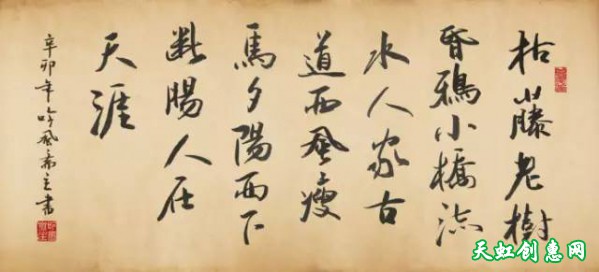 枯藤老樹
昏鴉小橋流
水人家古
道西風瘦
馬夕陽西下
断腸人在
天涯
辛卯年吟風斋主書
天虹创惠网